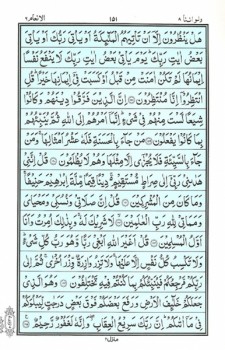 ولو اننا ٨ ١٥١ الانعام ٦
هَلْ يَنْظُرُوْنَ اِلَّاۤ اَنْ تَاْتِيَهُمُ الْمَلٰٓئِكَةُ اَوْ يَاْتِيَ رَبُّكَ اَوْ يَاْتِيَ
بَعْضُ اٰيٰتِ رَبِّكَ ؕ يَوْمَ يَاْتِيْ بَعْضُ اٰيٰتِ رَبِّكَ لَا يَنْفَعُ نَفْسًا
اِيْمَانُهَا لَمْ تَكُنْ اٰمَنَتْ مِنْ قَبْلُ اَوْ كَسَبَتْ فِيْۤ اِيْمَانِهَا خَيْرًا ؕ قُلِ
انْتَظِرُوْۤا اِنَّا مُنْتَظِرُوْنَ اِنَّ الَّذِيْنَ فَرَّقُوْا دِيْنَهُمْ وَكَانُوْا
شِيَعًا لَّسْتَ مِنْهُمْ فِيْ شَيْءٍ ؕ اِنَّمَاۤ اَمْرُهُمْ اِلَى اللّٰهِ ثُمَّ يُنَبِّئُهُمْ
بِمَا كَانُوْا يَفْعَلُوْنَ مَنْ جَآءَ بِالْحَسَنَةِ فَلَهٗ عَشْرُ اَمْثَالِهَا ۚ وَمَنْ
جَآءَ بِالسَّيِّئَةِ فَلَا يُجْزٰۤى اِلَّا مِثْلَهَا وَهُمْ لَا يُظْلَمُوْنَ قُلْ اِنَّنِيْ
هَدٰىنِيْ رَبِّيْۤ اِلٰى صِرَاطٍ مُّسْتَقِيْمٍ ۚ دِيْنًا قِيَمًا مِّلَّةَ اِبْرٰهِيْمَ حَنِيْفًا ۚ
وَمَا كَانَ مِنَ الْمُشْرِكِيْنَ قُلْ اِنَّ صَلَاتِيْ وَنُسُكِيْ وَمَحْيَايَ
وَمَمَاتِيْ لِلّٰهِ رَبِّ الْعٰلَمِيْنَ لَا شَرِيْكَ لَهٗ ۚ وَبِذٰلِكَ اُمِرْتُ وَاَنَا
اَوَّلُ الْمُسْلِمِيْنَ قُلْ اَغَيْرَ اللّٰهِ اَبْغِيْ رَبًّا وَّهُوَ رَبُّ كُلِّ شَيْءٍ ؕ
وَلَا تَكْسِبُ كُلُّ نَفْسٍ اِلَّا عَلَيْهَا ۚ وَلَا تَزِرُ وَازِرَةٌ وِّزْرَ اُخْرٰى ۚ ثُمَّ اِلٰى
رَبِّكُمْ مَّرْجِعُكُمْ فَيُنَبِّئُكُمْ بِمَا كُنْتُمْ فِيْهِ تَخْتَلِفُوْنَ وَهُوَ الَّذِيْ
جَعَلَكُمْ خَلٰٓئِفَ الْاَرْضِ وَرَفَعَ بَعْضَكُمْ فَوْقَ بَعْضٍ دَرَجٰتٍ لِّيَبْلُوَكُمْ
فِيْ مَاۤ اٰتٰىكُمْ ؕ اِنَّ رَبَّكَ سَرِيْعُ الْعِقَابِ ۖ وَاِنَّهٗ لَغَفُوْرٌ رَّحِيْمٌ
منزل ٢